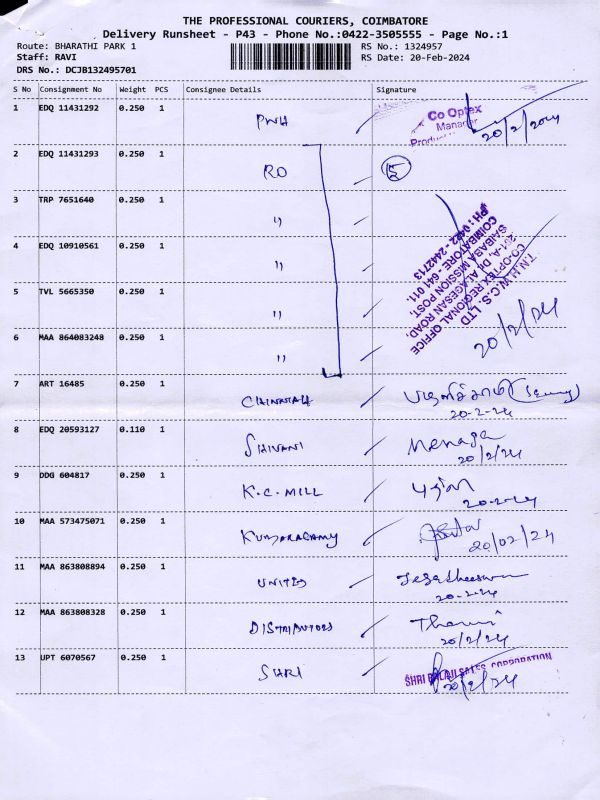 THE PROFESSIONAL COURIERS, COIMBATORE
Delivery Runsheet - P43 - Phone No.:0422-3505555 - Page No.:1
Route: BHARATHI PARK 1
RS No.: 1324957
Staff: RAVI
RS Date: 20-Feb-2024
DRS No.: DCJB132495701
S No Consignment No Weight PCS Consignee Details Signature
1 EDQ 11431292 0.250 1 PWH
Co Optex
Manager
20/2/2024
2 EDQ 11431293 0.250 1 RO 5
3 TRP 7651640 0.250 1 "
4 EDQ 10910561 0.250 1 "
5 TVL 5665350 0.250 1 "
6 MAA 864083248 0.250 1 "
T.N.H.W.C.S. LTD
CO-OPTEX REGIONAL OFFICE
201-A, DR ALAGESAN ROAD,
SAIBABA MISSION POST,
COIMBATORE - 641 011.
PH : 0422 - 2442713
20/2/24
7 ART 16485 0.250 1
20-2-24
8 EDQ 20593127 0.110 1 SHIVANI Menaga
20/2/24
9 DDG 604817 0.250 1 K.C. MILL
20-2-24
10 MAA 573475071 0.250 1
20/02/24
11 MAA 863808894 0.250 1 UNITED
20-2-24
12 MAA 863808328 0.250 1 DISTRIBUTORS
20/2/24
13 UPT 6070567 0.250 1 SHRI SHRI BALAJI SALES CORPORATION
20/2/24